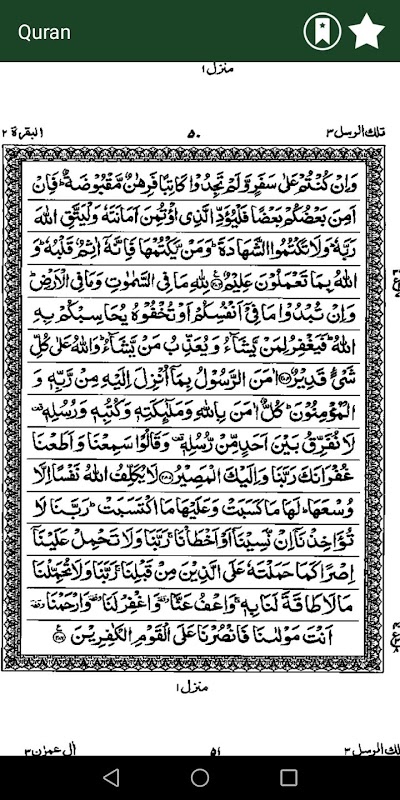 Quran
منزل ۱
البقرة ۲ ۵۰ تلك الرسل ۳
وَاِنْ كُنْتُمْ عَلٰى سَفَرٍ وَّلَمْ تَجِدُوْا كَاتِبًا فَرِهٰنٌ مَّقْبُوْضَةٌ ؕ فَاِنْ
اَمِنَ بَعْضُكُمْ بَعْضًا فَلْيُؤَدِّ الَّذِى اؤْتُمِنَ اَمَانَتَهٗ وَلْيَتَّقِ اللّٰهَ
رَبَّهٗ ؕ وَلَا تَكْتُمُوا الشَّهَادَةَ ؕ وَمَنْ يَّكْتُمْهَا فَاِنَّهٗۤ اٰثِمٌ قَلْبُهٗ ؕ وَ
اللّٰهُ بِمَا تَعْمَلُوْنَ عَلِيْمٌ ﴿۲۸۳﴾ لِلّٰهِ مَا فِى السَّمٰوٰتِ وَمَا فِى الْاَرْضِ ؕ
وَاِنْ تُبْدُوْا مَا فِىْۤ اَنْفُسِكُمْ اَوْ تُخْفُوْهُ يُحَاسِبْكُمْ بِهِ
اللّٰهُ ؕ فَيَغْفِرُ لِمَنْ يَّشَآءُ وَيُعَذِّبُ مَنْ يَّشَآءُ ؕ وَاللّٰهُ عَلٰى كُلِّ
شَىْءٍ قَدِيْرٌ ﴿۲۸۴﴾ اٰمَنَ الرَّسُوْلُ بِمَاۤ اُنْزِلَ اِلَيْهِ مِنْ رَّبِّهٖ وَ
الْمُؤْمِنُوْنَ ؕ كُلٌّ اٰمَنَ بِاللّٰهِ وَمَلٰٓئِكَتِهٖ وَكُتُبِهٖ وَرُسُلِهٖ
لَا نُفَرِّقُ بَيْنَ اَحَدٍ مِّنْ رُّسُلِهٖ وَقَالُوْا سَمِعْنَا وَاَطَعْنَا
غُفْرَانَكَ رَبَّنَا وَاِلَيْكَ الْمَصِيْرُ ﴿۲۸۵﴾ لَا يُكَلِّفُ اللّٰهُ نَفْسًا اِلَّا
وُسْعَهَا ؕ لَهَا مَا كَسَبَتْ وَعَلَيْهَا مَا اكْتَسَبَتْ ؕ رَبَّنَا لَا
تُؤَاخِذْنَاۤ اِنْ نَّسِيْنَاۤ اَوْ اَخْطَاْنَا ۚ رَبَّنَا وَلَا تَحْمِلْ عَلَيْنَاۤ
اِصْرًا كَمَا حَمَلْتَهٗ عَلَى الَّذِيْنَ مِنْ قَبْلِنَا ۚ رَبَّنَا وَلَا تُحَمِّلْنَا
مَا لَا طَاقَةَ لَنَا بِهٖ ۚ وَاعْفُ عَنَّا وَاغْفِرْ لَنَا وَارْحَمْنَا
اَنْتَ مَوْلٰىنَا فَانْصُرْنَا عَلَى الْقَوْمِ الْكٰفِرِيْنَ ﴿۲۸۶﴾
منزل ۱
اٰل عمرٰن ۳ ۵۱ تلك الرسل ۳